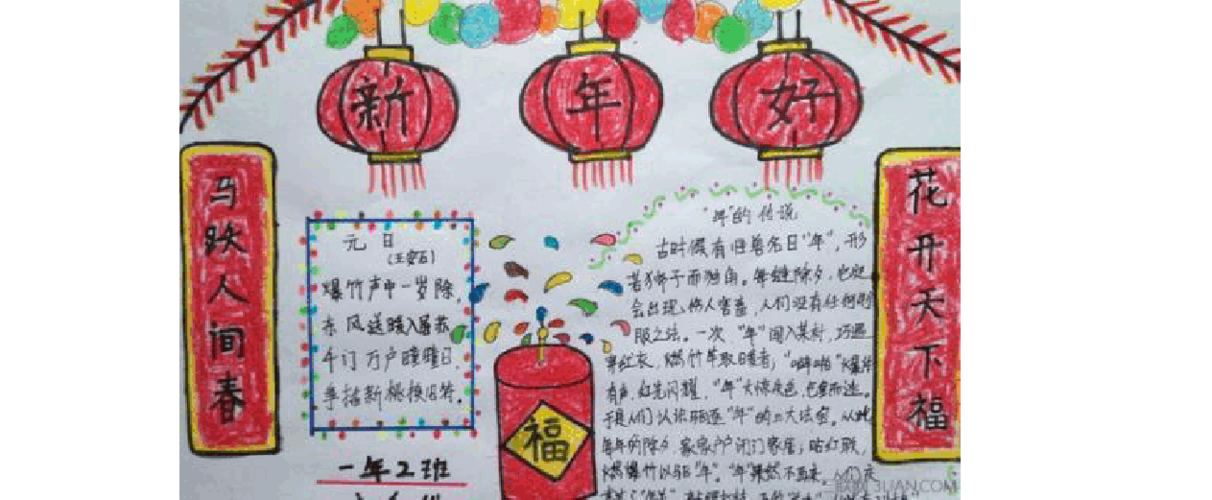 新年好
马跃人间春
花开天下福
元日
(王安石)
爆竹声中一岁除,
东风送暖入屠苏
千门万户瞳瞳日,
争插新桃换旧符。
福
一年2班
"年"的传说
古时候有怪兽名曰"年",形
若狮子而独角。每逢除夕,它定
会出现,伤人害畜,人们没有任何
服之法。一次"年"闯入某村,巧遇
穿红衣、燃竹竿取暖者;"噼啪"爆
有声,红光闪耀,"年"大惊失色,
于是人们认识"年"的三大法宝。从此
每年的除夕,家家户户闭门家居;贴红联,
燃爆竹以"年"。"年"果然不再来。人们
3LIAN.COM